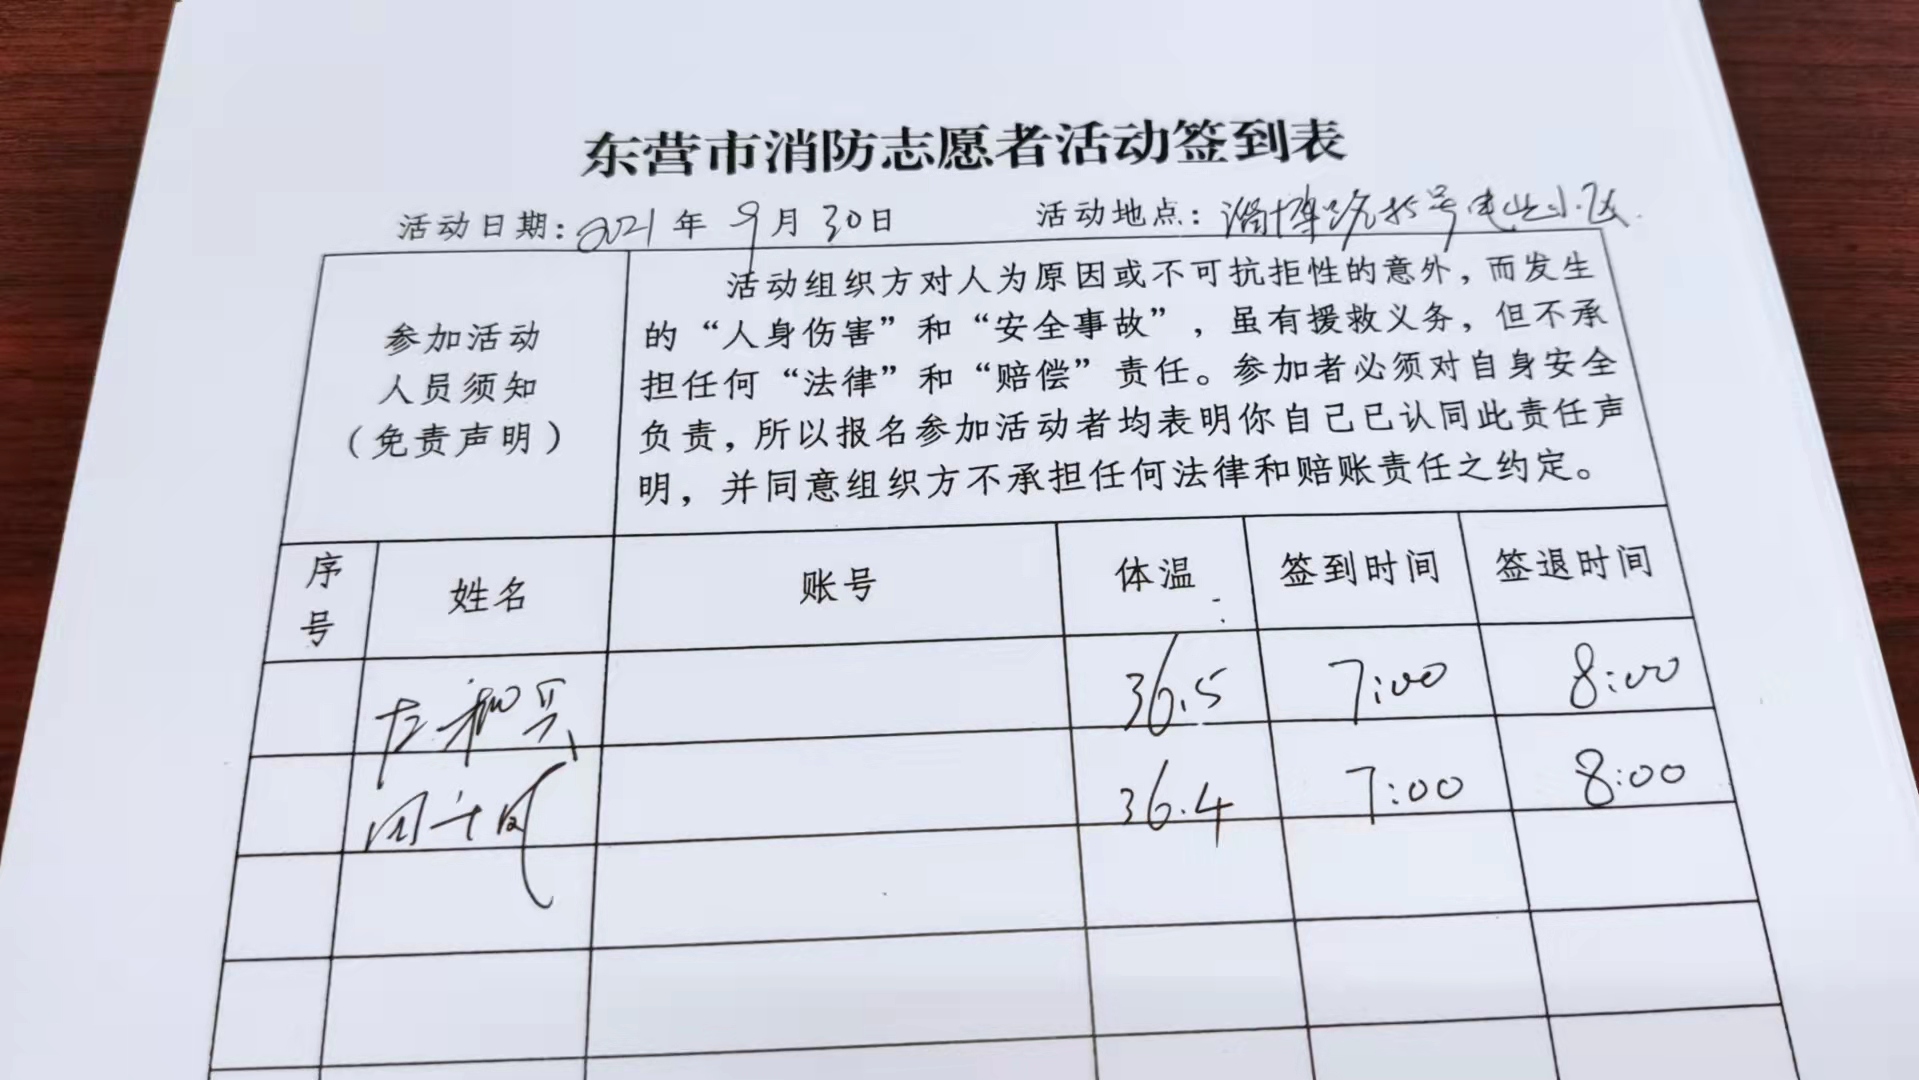 东营市消防志愿者活动签到表
活动日期：2021年9月30日 活动地点：淄博路35号电业小区
参加活动
人员须知
（免责声明）
活动组织方对人为原因或不可抗拒性的意外，而发生
的“人身伤害”和“安全事故”，虽有援救义务，但不承
担任何“法律”和“赔偿”责任。参加者必须对自身安全
负责，所以报名参加活动者均表明你自己已认同此责任声
明，并同意组织方不承担任何法律和赔账责任之约定。
序号 姓名 账号 体温 签到时间 签退时间
36.5 7:00 8:00
36.4 7:00 8:00